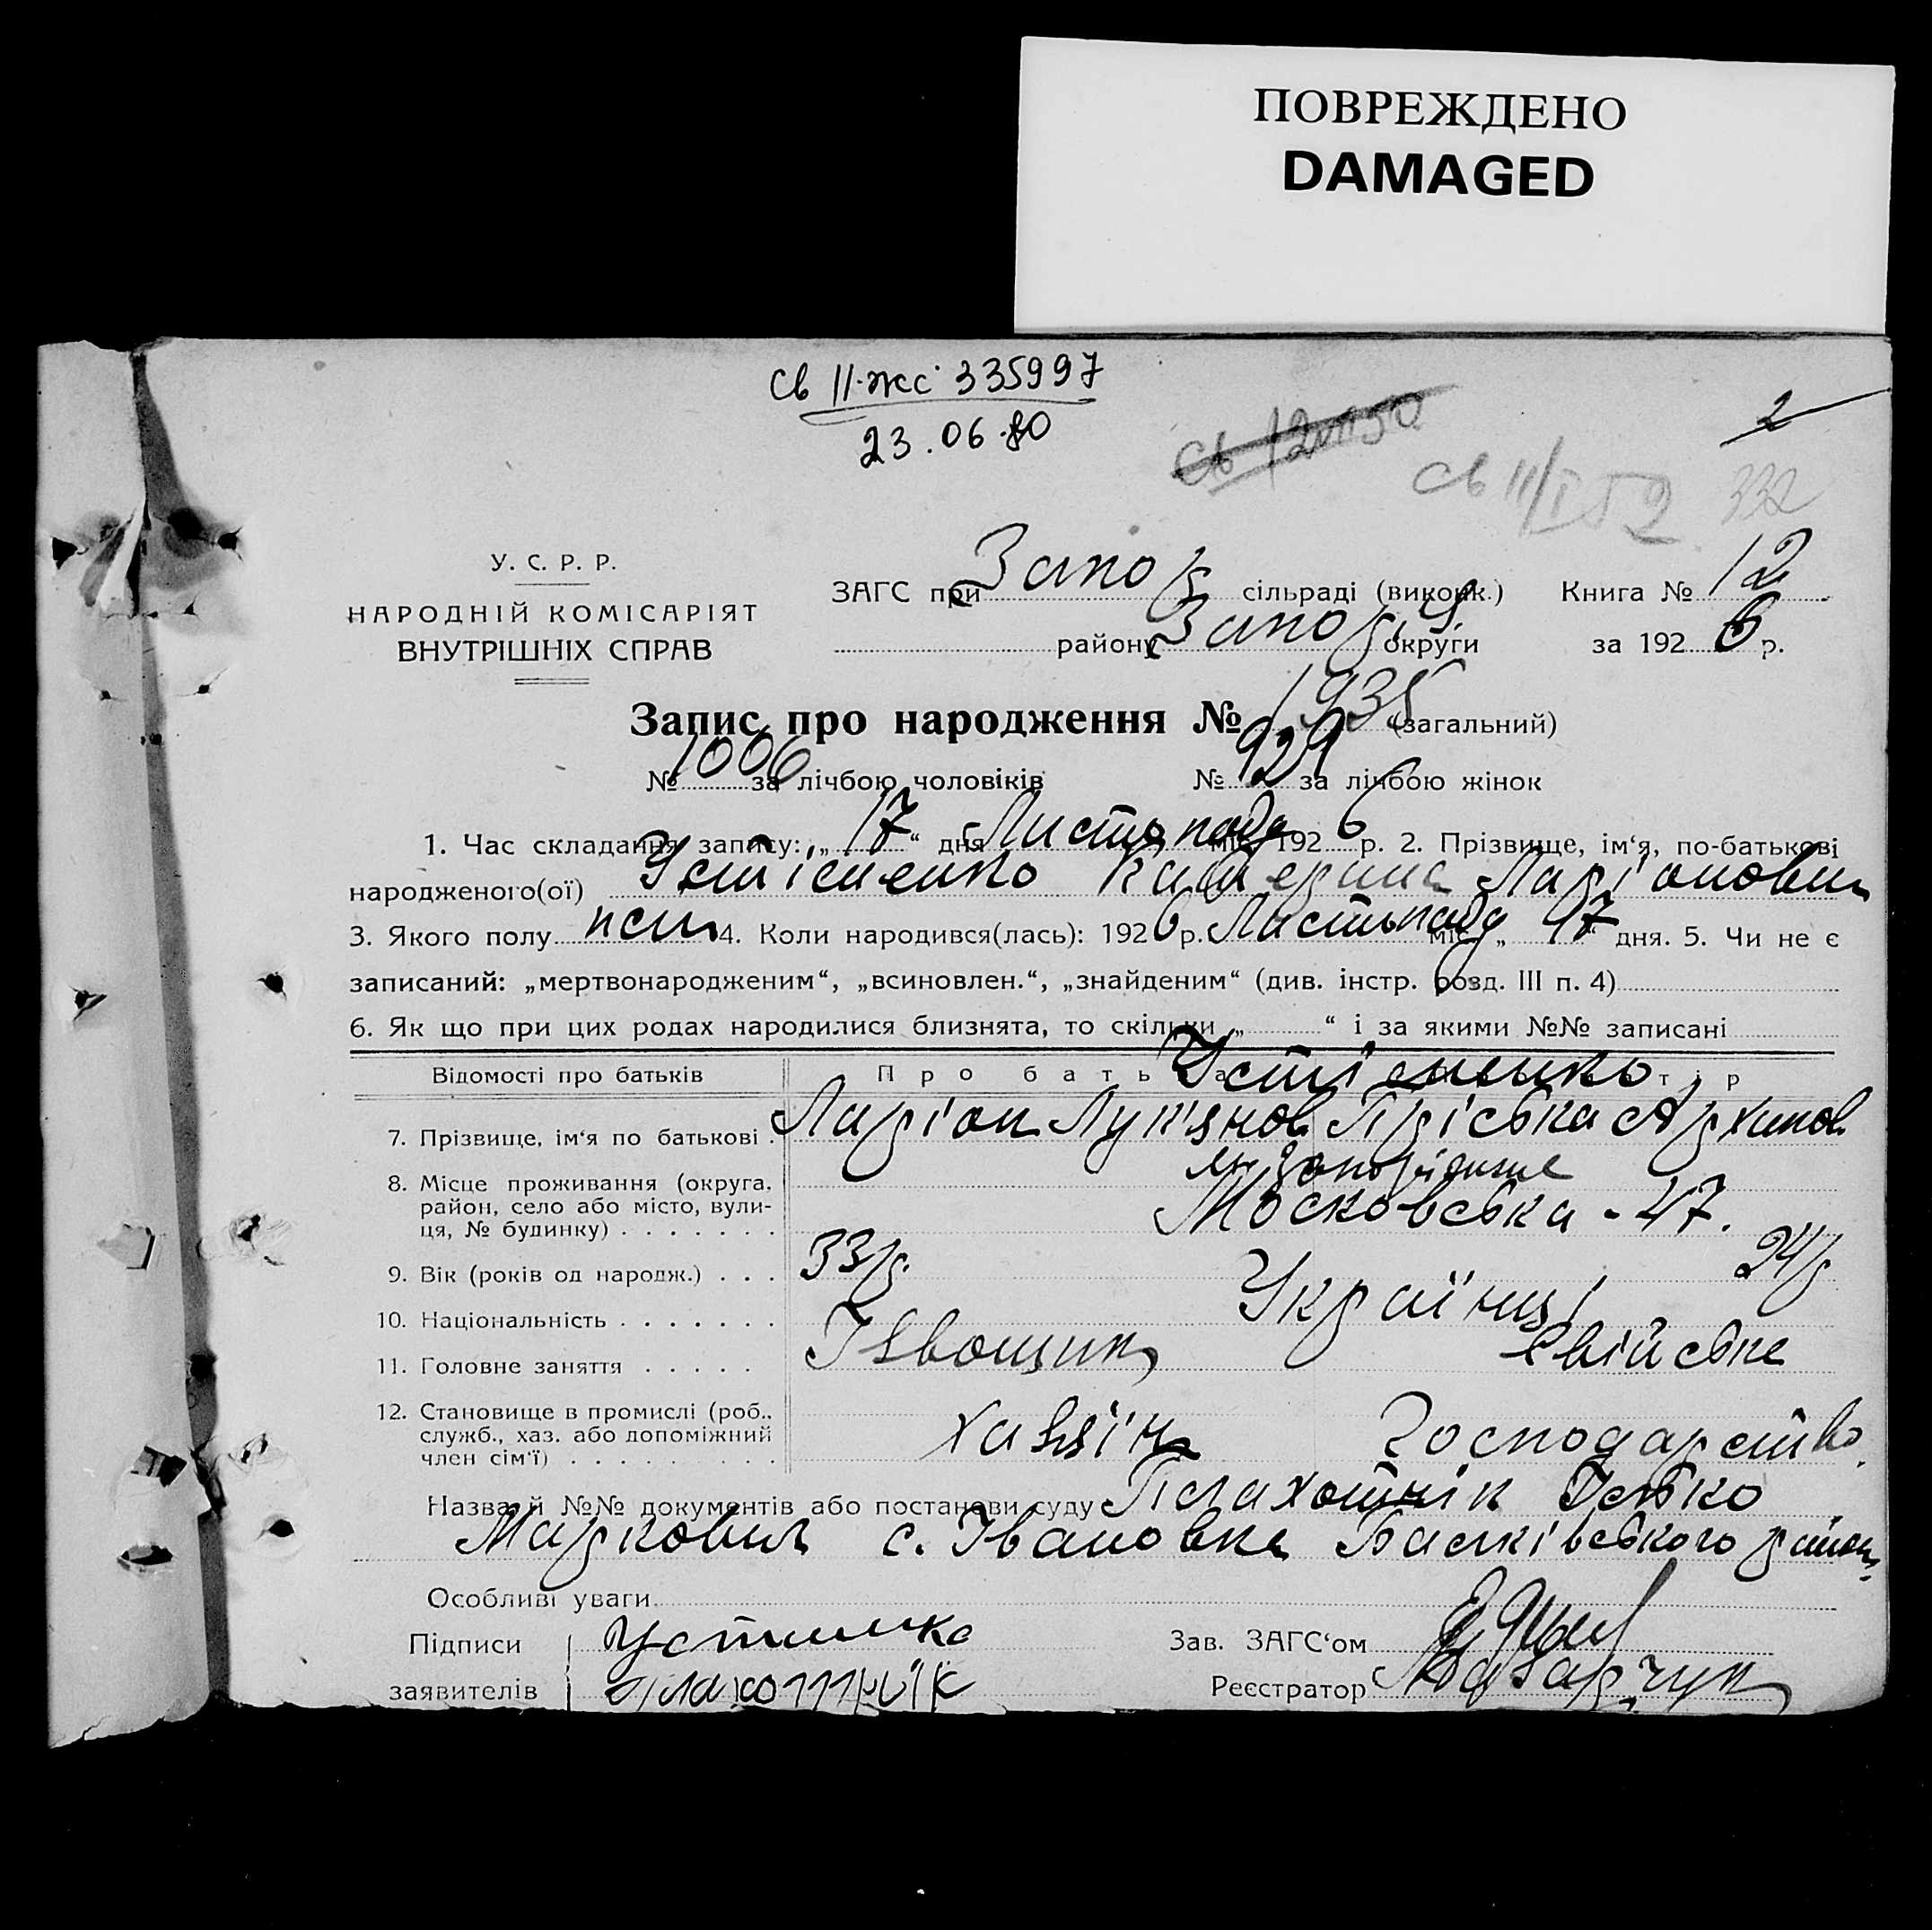 ПОВРЕЖДЕНО
DAMAGED
Св II-жс 335997
23.06.80
2
Св 11/I 52 332
У. С. Р. Р.
НАРОДНІЙ КОМІСАРІЯТ
ВНУТРІШНІХ СПРАВ
ЗАГС при Запор сільраді (виконк.) Книга № 12
району Запор округи за 1926 р.
Запис про народження № 1935 (загальний)
№ 1006 за лічбою чоловіків № 929 за лічбою жінок
1. Час складання запису: „17“ дня Листопада міс. 1926 р. 2. Прізвище, ім‘я, по-батькові
народженого(ої) Устіменко Катерина Ларіоновна
3. Якого полу жін 4. Коли народився(лась): 1926 р. Листопада міс. „17“ дня. 5. Чи не є
записаний: „мертвонародженим“, „всиновлен.“, „знайденим“ (див. інстр. розд. III п. 4)
6. Як що при цих родах народилися близнята, то скільки „ “ і за якими №№ записані
Відомості про батьків Про батька Устіменко
7. Прізвище, ім‘я по батькові Ларіон Лук'янов Пріська Архипов
8. Місце проживання (округа, м Запоріжже
район, село або місто, вули- Московська - 47.
ця, № будинку)
9. Вік (років од народж.) 33 р. 24 р
10. Національність Українці
11. Головне заняття Ізвощик Свійське
12. Становище в промислі (роб.,
служб., хаз. або допоміжний хазяїн Господарство
член сім‘ї)
Назва й №№ документів або постанови суду Плахотнік
Маркович с. Івановка району
Особливі уваги
Підписи Устименко Зав. ЗАГС‘ом
заявителів Плахотнік Реєстратор